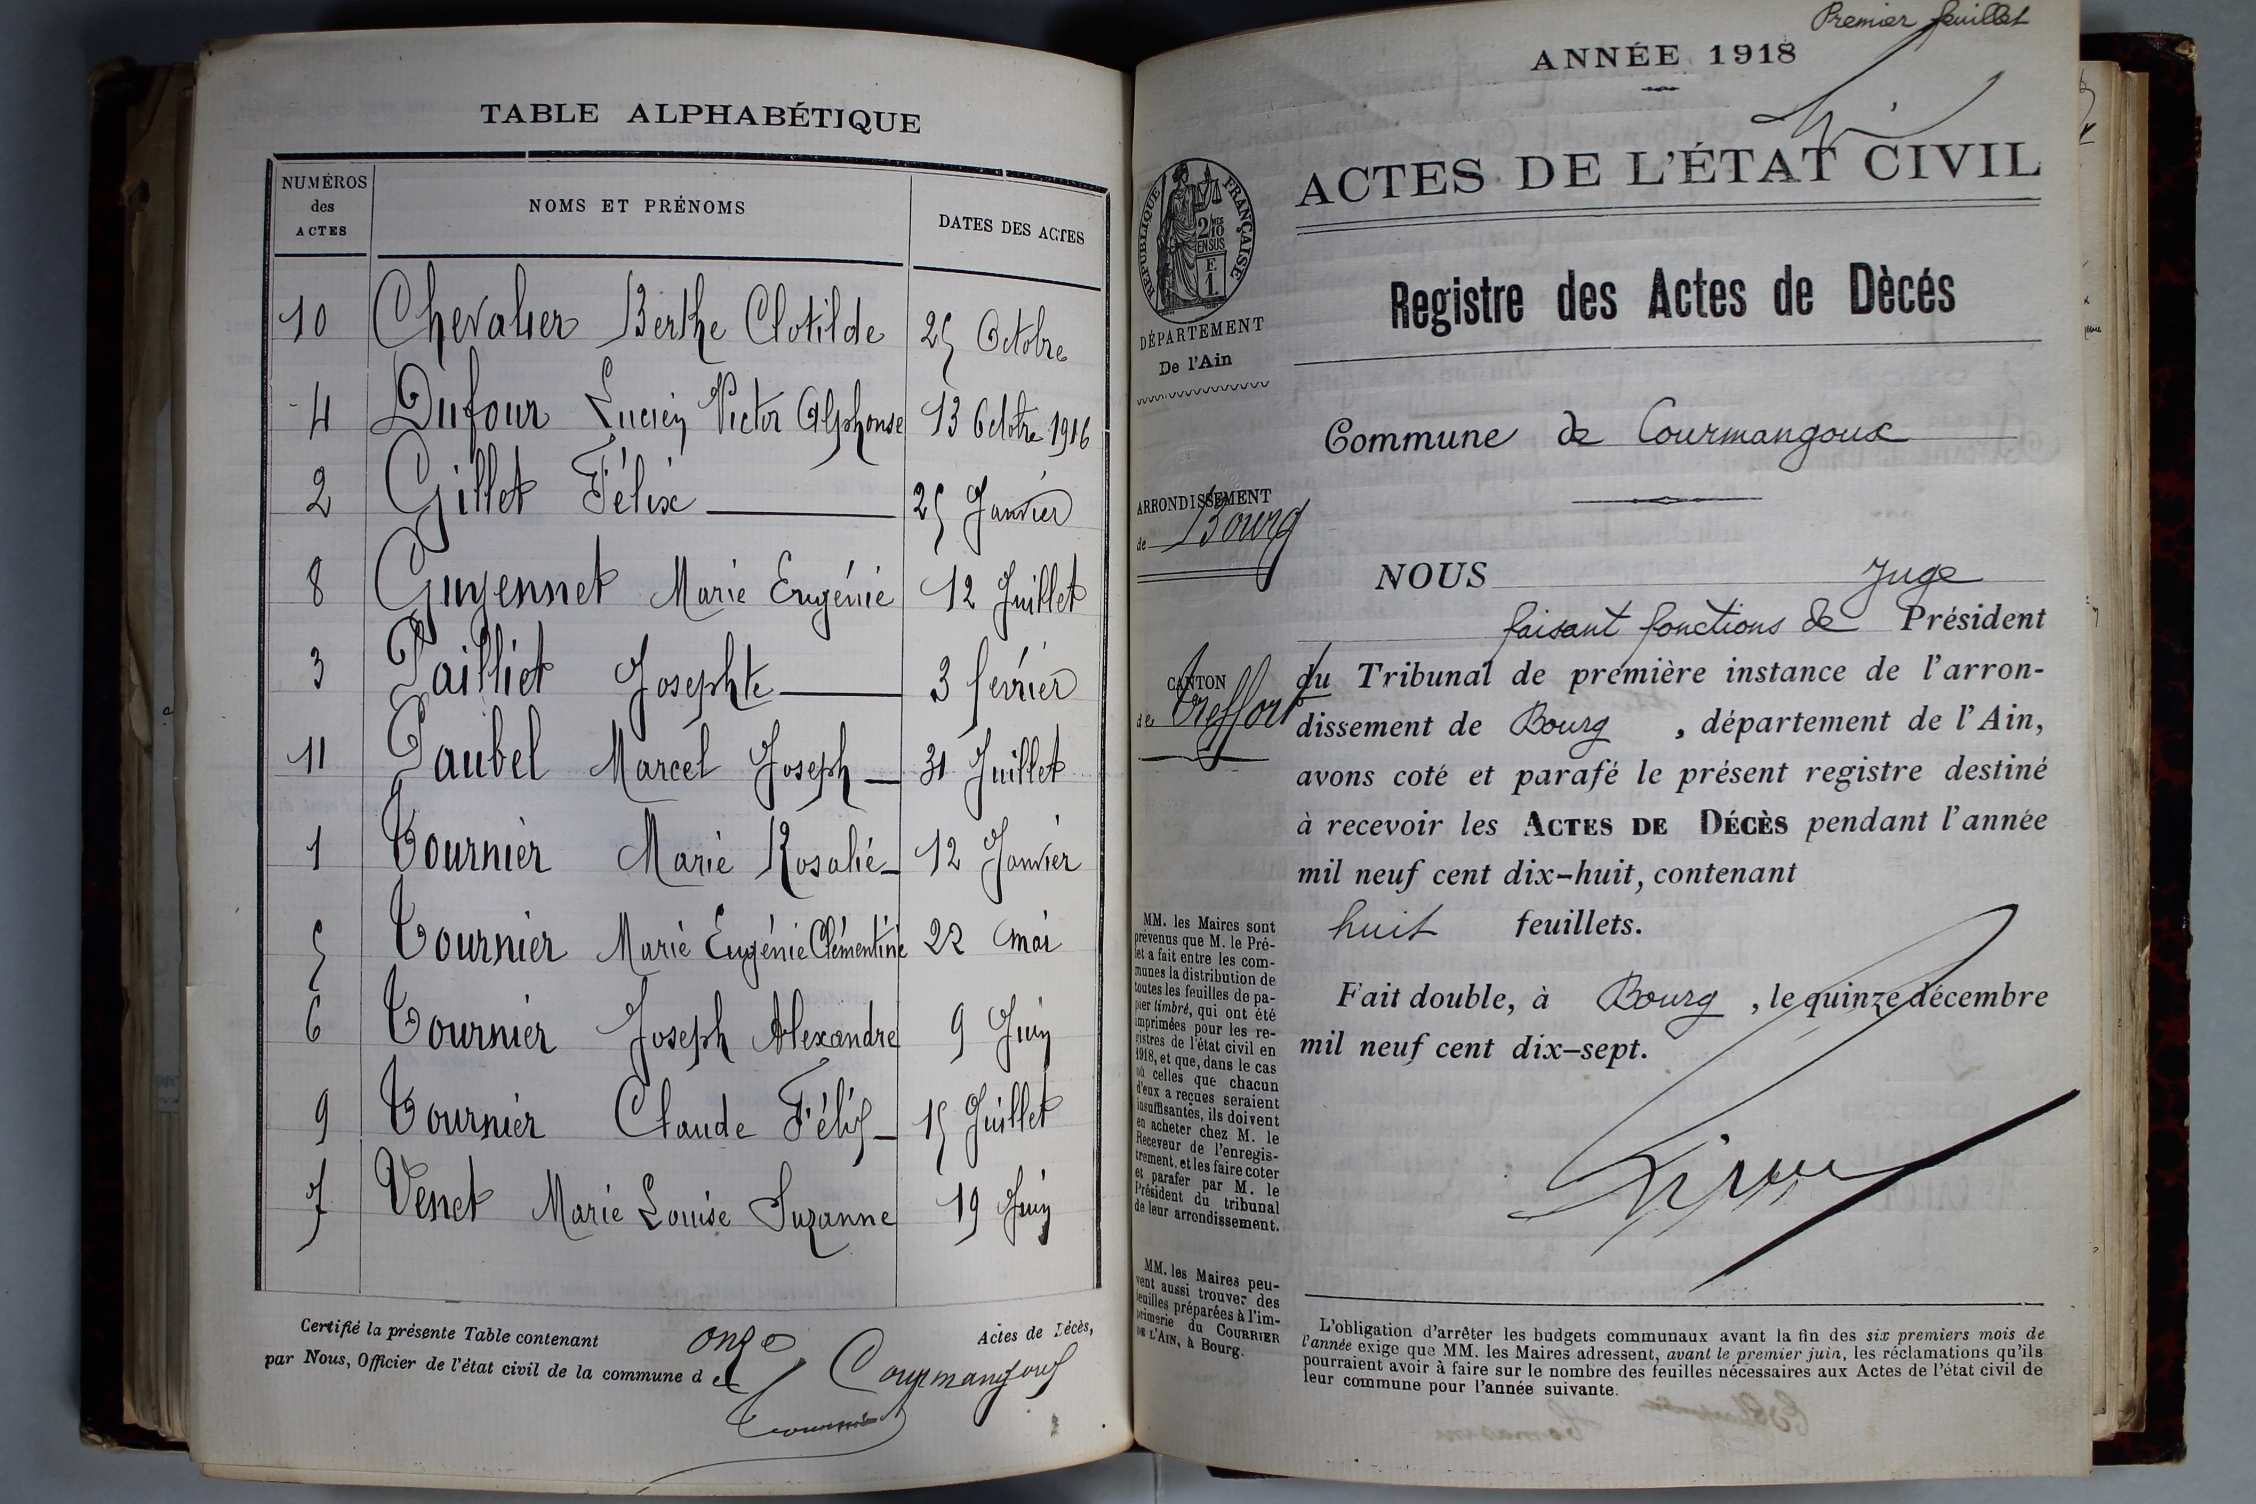 TABLE ALPHABÉTIQUE
NUMÉROS des ACTES NOMS ET PRÉNOMS DATES DES ACTES
10 Chevalier Berthe Clotilde 25 Octobre
4 Dufour Lucien Victor Alphonse 13 Octobre 1916
2 Gillet Félix 25 Janvier
8 Guyennet Marie Eugénie 12 Juillet
3 Pailliet Josephte 3 février
11 Paubel Marcel Joseph 31 Juillet
1 Tournier Marie Rosalie 12 Janvier
5 Tournier Marie Eugénie Clémentine 22 mai
6 Tournier Joseph Alexandre 9 Juin
9 Tournier Claude Félix 15 Juillet
7 Venet Marie Louise Suzanne 19 Juin
Certifié la présente Table contenant onze Actes de Décès,
par Nous, Officier de l'état civil de la commune de Courmangoux
Tournier
Premier feuillet
ANNÉE 1918
ACTES DE L'ÉTAT CIVIL
RÉPUBLIQUE FRANÇAISE
2/10
EN SUS
E
1
DÉPARTEMENT
De l'Ain
Registre des Actes de Dècés
Commune de Courmangoux
ARRONDISSEMENT
de Bourg
CANTON
de Treffort
NOUS Juge
faisant fonctions de Président
du Tribunal de première instance de l'arron-
dissement de Bourg, département de l'Ain,
avons coté et parafé le présent registre destiné
à recevoir les ACTES DE DÉCÈS pendant l'année
mil neuf cent dix-huit, contenant
huit feuillets.
Fait double, à Bourg, le quinze décembre
mil neuf cent dix-sept.
MM. les Maires sont
prévenus que M. le Pré-
fet a fait entre les com-
munes la distribution de
toutes les feuilles de pa-
pier timbré, qui ont été
imprimées pour les re-
gistres de l'état civil en
1918, et que, dans le cas
où celles que chacun
d'eux a reçues seraient
insuffisantes, ils doivent
en acheter chez M. le
Receveur de l'enregis-
trement, et les faire coter
et parafer par M. le
Président du tribunal
de leur arrondissement.
MM. les Maires peu-
vent aussi trouver des
feuilles préparées à l'im-
primerie du COURRIER
DE L'AIN, à Bourg.
L'obligation d'arrêter les budgets communaux avant la fin des six premiers mois de
l'année exige que MM. les Maires adressent, avant le premier juin, les réclamations qu'ils
pourraient avoir à faire sur le nombre des feuilles nécessaires aux Actes de l'état civil de
leur commune pour l'année suivante.